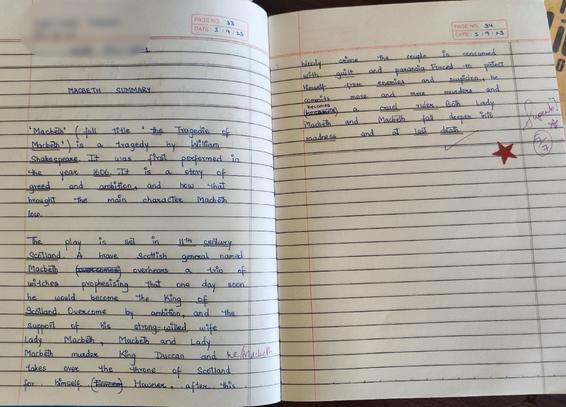 PAGE NO. 33
DATE: 5/9/23
MACBETH SUMMARY
'Macbeth' (full title 'the Tragedie of
Macbeth') is a tragedy by William
Shakespeare. It was first performed in
the year 1606. It is a story of
greed and ambition, and how that
brought the main character Macbeth
low.
The play is set in 11th century
Scotland. A brave Scottish general named
Macbeth overhears a trio of
witches prophesising that one day soon
he would become the King of
Scotland. Overcome by ambition, and the
support of his strong-willed wife
Lady Macbeth, Macbeth and Lady
Macbeth murder King Duccan and he/Macbeth
takes over the throne of Scotland
for himself. However, after this
PAGE NO. 34
DATE: 5/9/23
bloody crime the couple is consumed
with guilt and paranoia. Forced to protect
himself from enemies and suspicion, he
commits more and more murders and
becomes a cruel ruler. Both Lady
Macbeth and Macbeth fall deeper into
madness and at last death.
Superb!